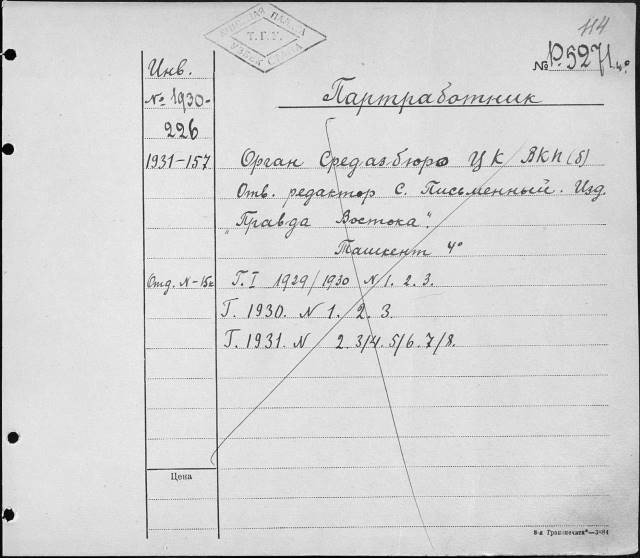 114
№ Р.5271 4°
Т.Г.У.
Инв.
№ 1930-
226
1931-157
Партработник
Орган Средазбюро ЦК ВКП(б)
Отв. редактор С. Письменный. Изд.
„Правда Востока".
Ташкент 4°
Отд. N-15к
Г. I 1929/1930 N 1. 2. 3.
Г. 1930. N 1. 2. 3.
Г. 1931. N 2. 3/4. 5/6. 7/8.
Цена